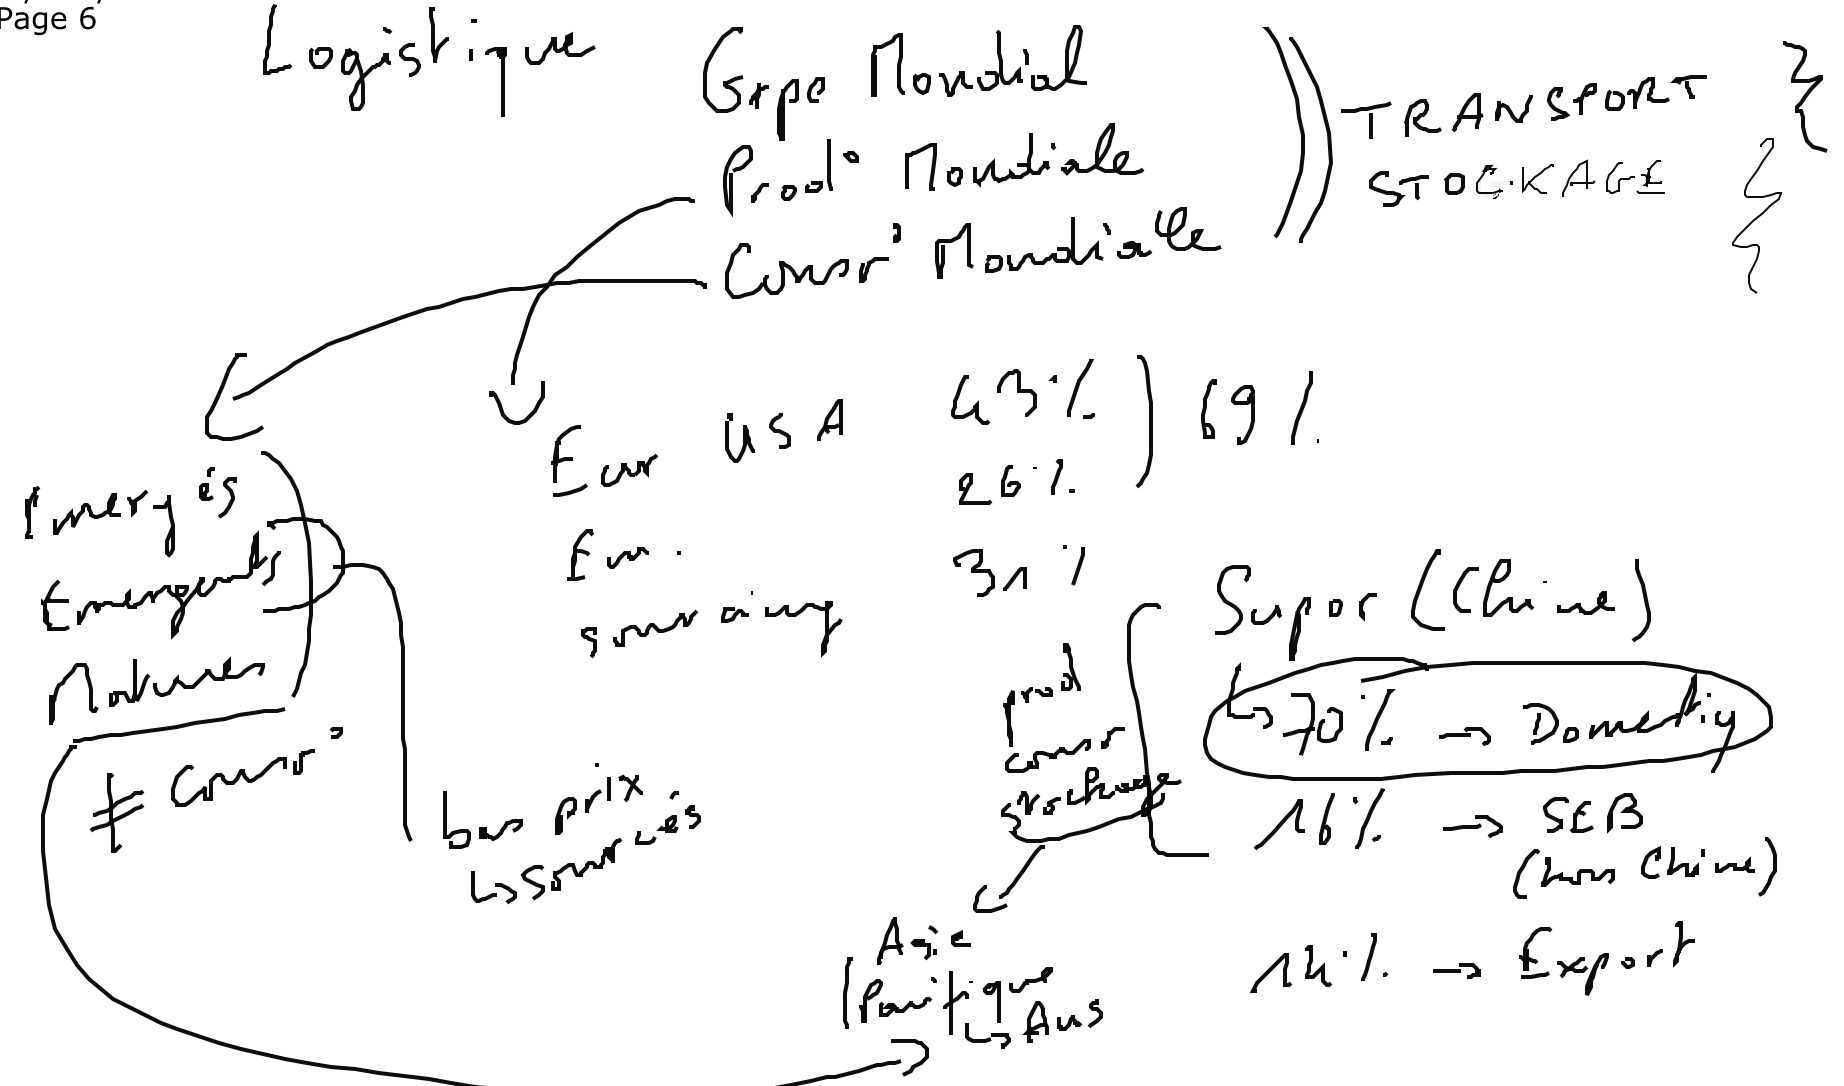 Page 6
Logistique
Grpe Mondial
Prod° Mondiale
Conso° Mondiale
TRANSPORT
STOCKAGE
Eur USA 43%
26%
69%
Em. 31%
sourcing
Immergés
Emergents
Matures
≠ Conso°
bas prix
↳ sourcés
Supor (Chine)
↳ 70% → Domestiq
16% → SEB
(hors Chine)
14% → Export
prod
conso
stockage
Asie
Pacifique
↳ Aus